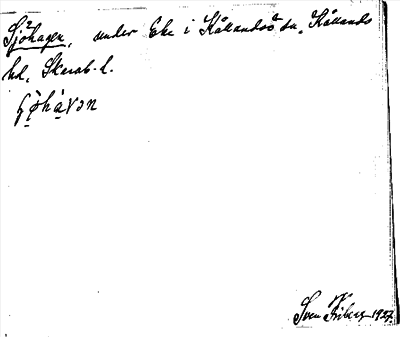 Sjöhagen, under Eke i Kållandsö sn, Kållands
hd, Skarab. l.
Sven Friberg 1927.